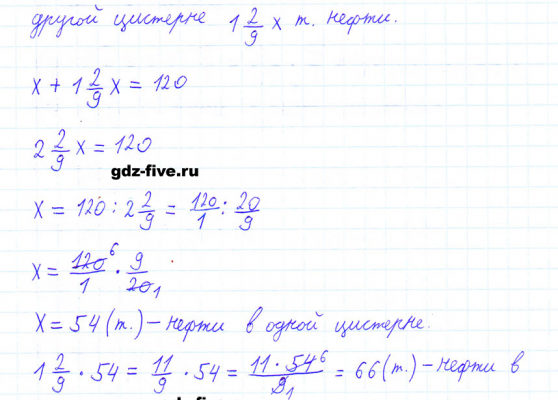 другой цистерне 1 2/9 x т. нефти.
x + 1 2/9 x = 120
2 2/9 x = 120
gdz-five.ru
x = 120 : 2 2/9 = 120/1 : 20/9
x = 120⁶/1 · 9/20₁
x = 54 (т.) – нефти в одной цистерне.
1 2/9 · 54 = 11/9 · 54 = 11 · 54⁶/9₁ = 66 (т.) – нефти в